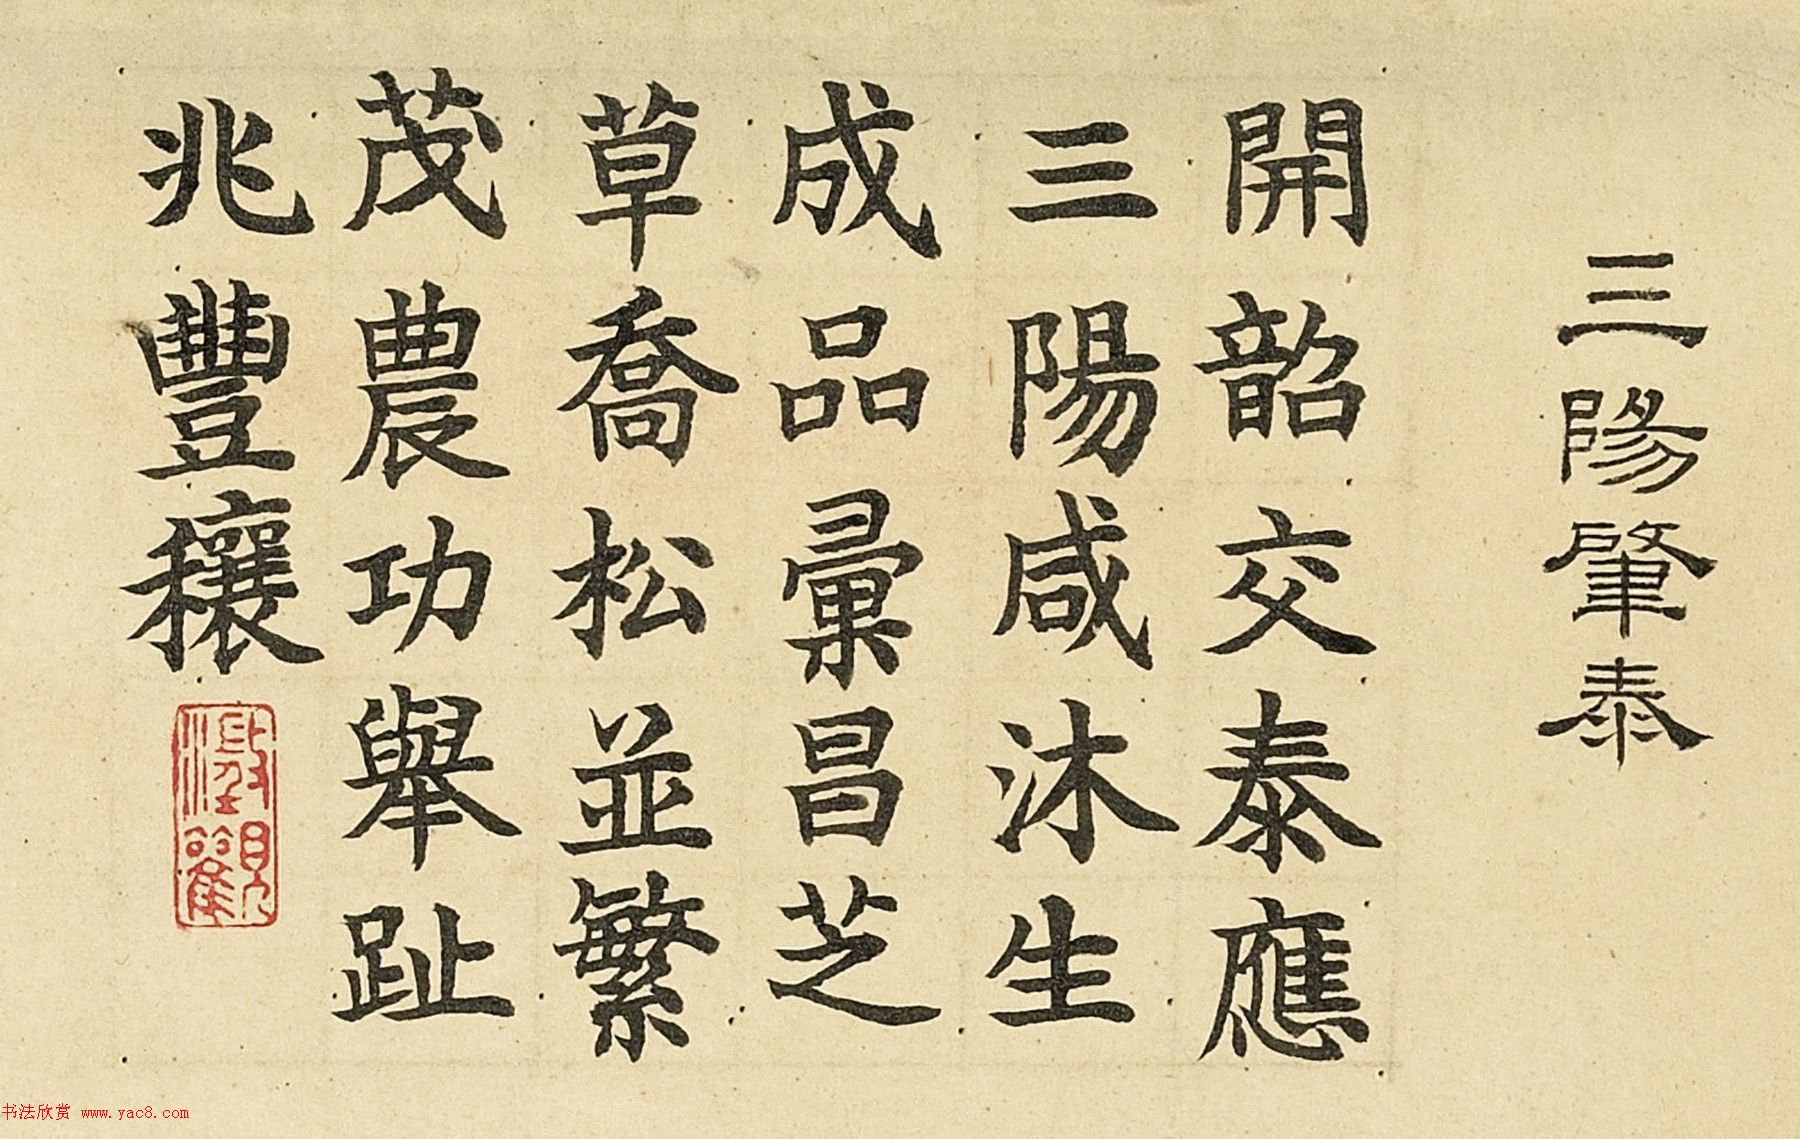 三陽肇泰
開韶交泰應
三陽咸沐生
成品彙昌芝
草喬松並繁
茂農功舉趾
兆豐穰
澂觀
书法欣赏 www.yac8.com